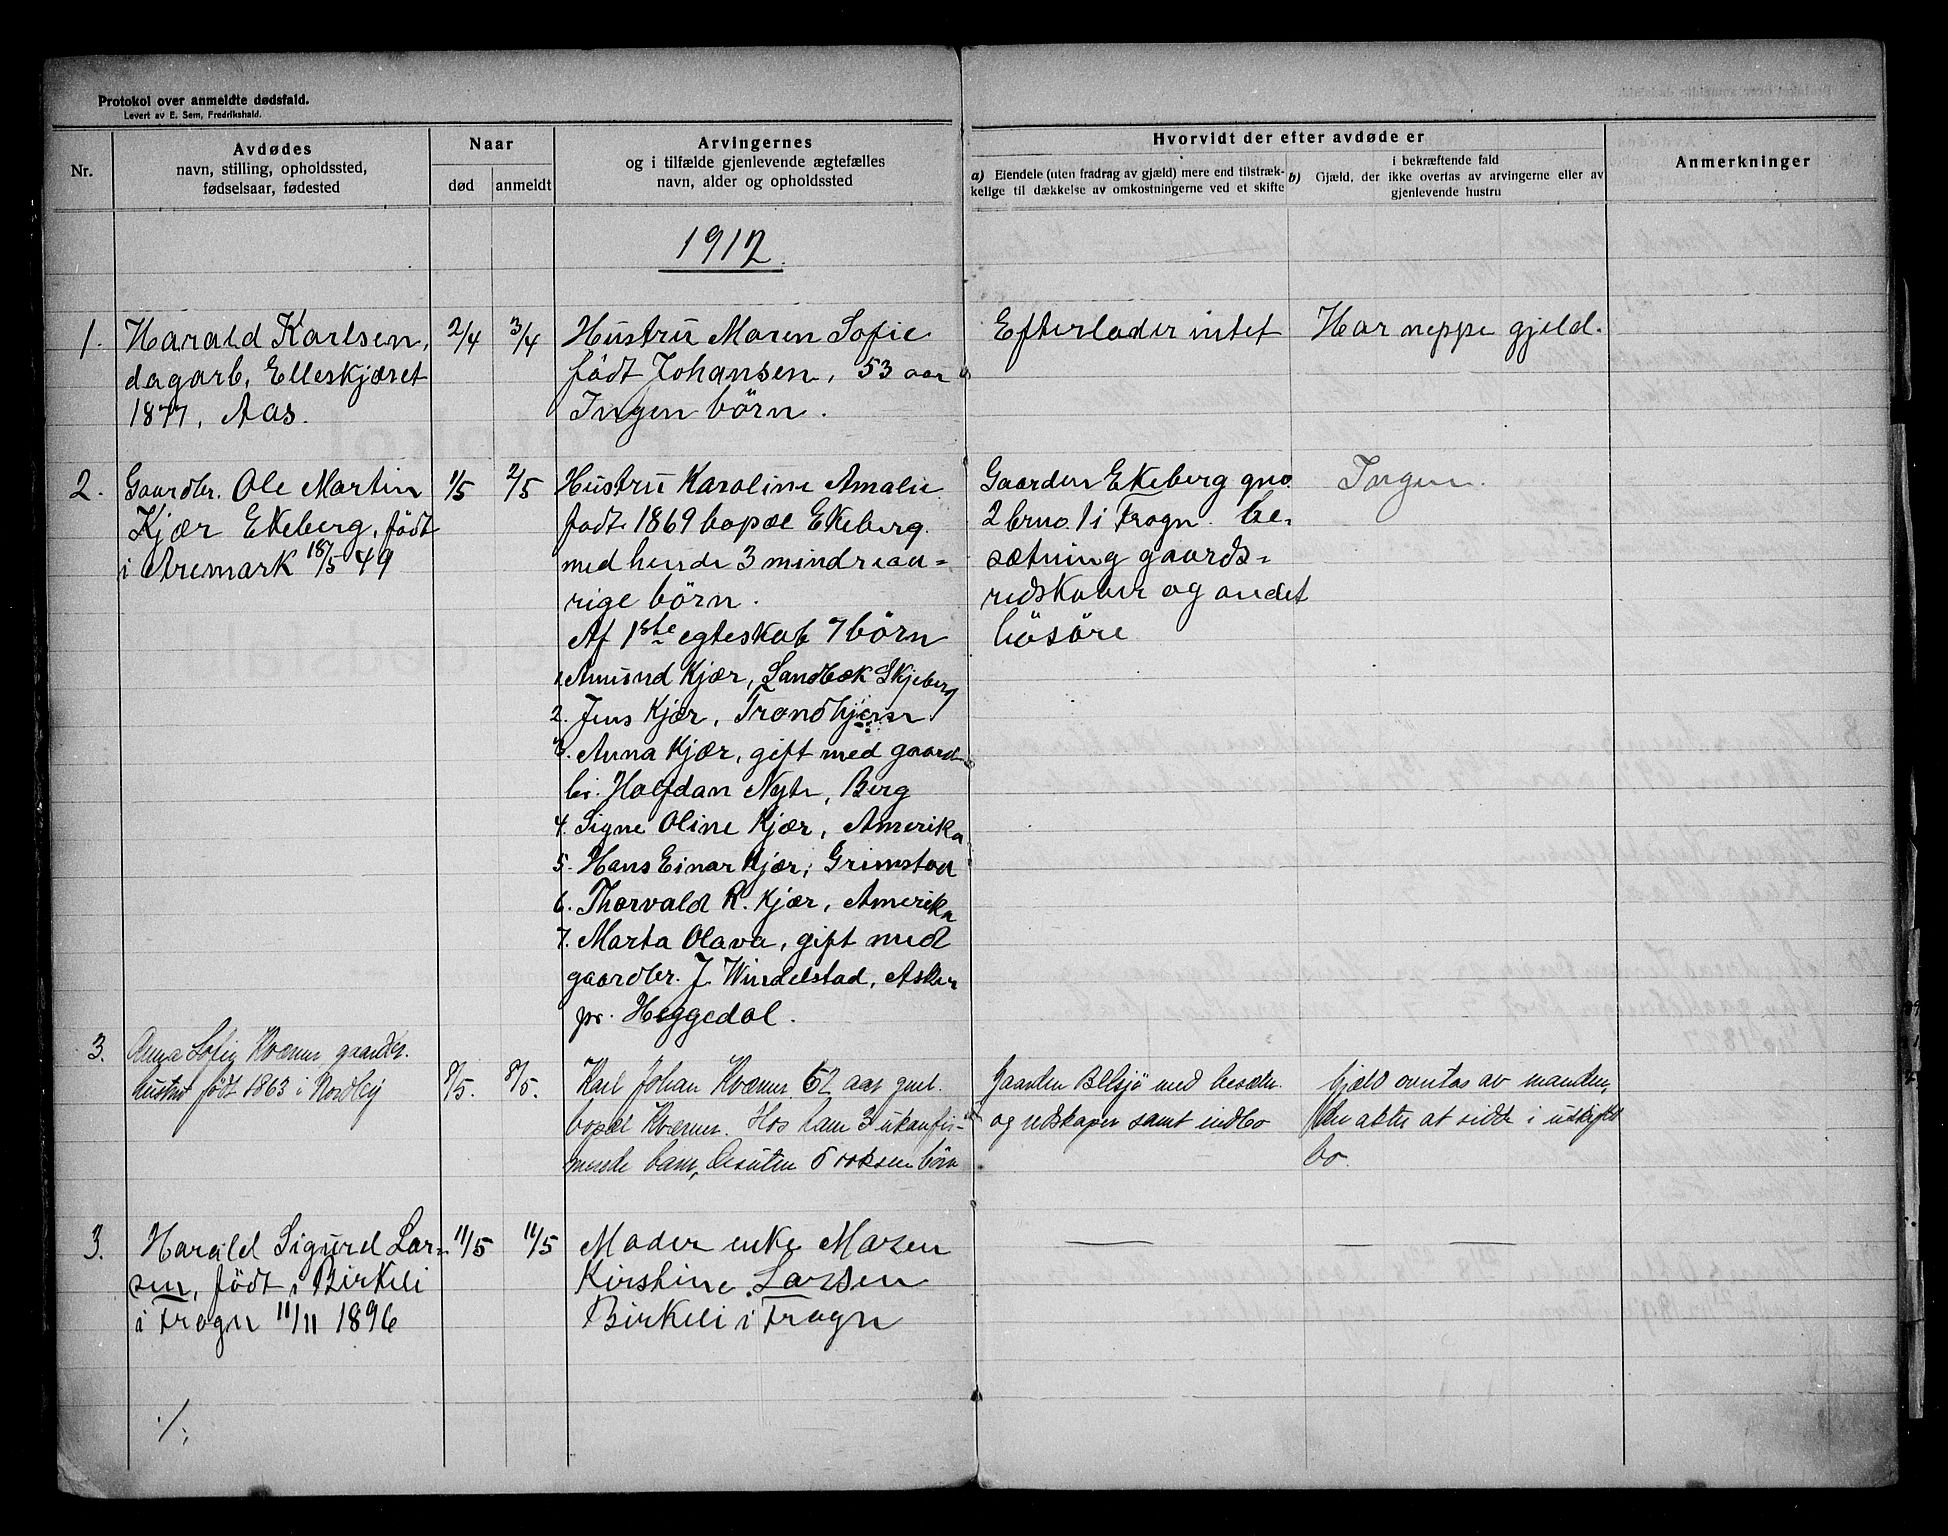 Protokol over anmeldte dødsfald.
Levert av E. Sem, Fredrikshald.
Nr.
Avdødes
navn, stilling, opholdssted,
fødselsaar, fødested
Naar
død
anmeldt
Arvingernes
og i tilfælde gjenlevende ægtefælles
navn, alder og opholdssted
Hvorvidt der efter avdøde er
a) Eiendele (uten fradrag av gjæld) mere end tilstræk-
kelige til dækkelse av omkostningerne ved et skifte
i bekræftende fald
b) Gjæld, der ikke overtas av arvingerne eller av
gjenlevende hustru
Anmerkninger
1912.
1.
Harald Karlsen,
dagarb, Elleskjæret
1877, Aas.
2/4
3/4
Hustru Maren Sofie
født Johansen, 53 aar
Ingen børn.
Efterlader intet
Har neppe gjeld.
2.
Gaardbr. Ole Martin
Kjær Ekeberg, født
i Aremark 18/5 49
1/5
2/5
Hustru Karoline Amalie
født 1869 bopæl Ekeberg.
med hende 3 mindreaa-
rige børn.
Af 1ste egteskab 7 børn
1. Amund Kjær, Sandbæk Skjeberg
2. Jens Kjær, Trondhjem
3. Anna Kjær, gift med gaard-
br. Halfdan Nyte, Berg
4. Signe Oline Kjær, Amerika
5. Hans Einar Kjær, Grimstad
6. Thorvald R. Kjær, Amerika
7. Marta Olava, gift med
gaardbr. J. Windelstad, Asker
pr. Heggedal.
Gaarden Ekeberg gno.
2 brno. 1 i Frogn. be-
sætning gaards-
redskaber og andet
løsøre
Ingen.
3.
Anna Sofie Kværner gaardbr.
hustru født 1863 i Nordby
8/5.
8/5.
Karl Johan Kværner 62 aar gml.
bopæl Kværner. Hos ham 3 ukonfir-
merede barn, desuten 5 voksen børn
Gaarden Blbsjø med besætn.
og redskaper samt indbo
Gjæld overtas av manden,
der akter at sidde i uskiftet
bo.
3.
Harald Sigurd Lar-
sen, født i Birkeli
i Frogn 11/11 1896
11/5
11/5
Moder enke Maren
Kirstine Larsen
Birkeli i Frogn